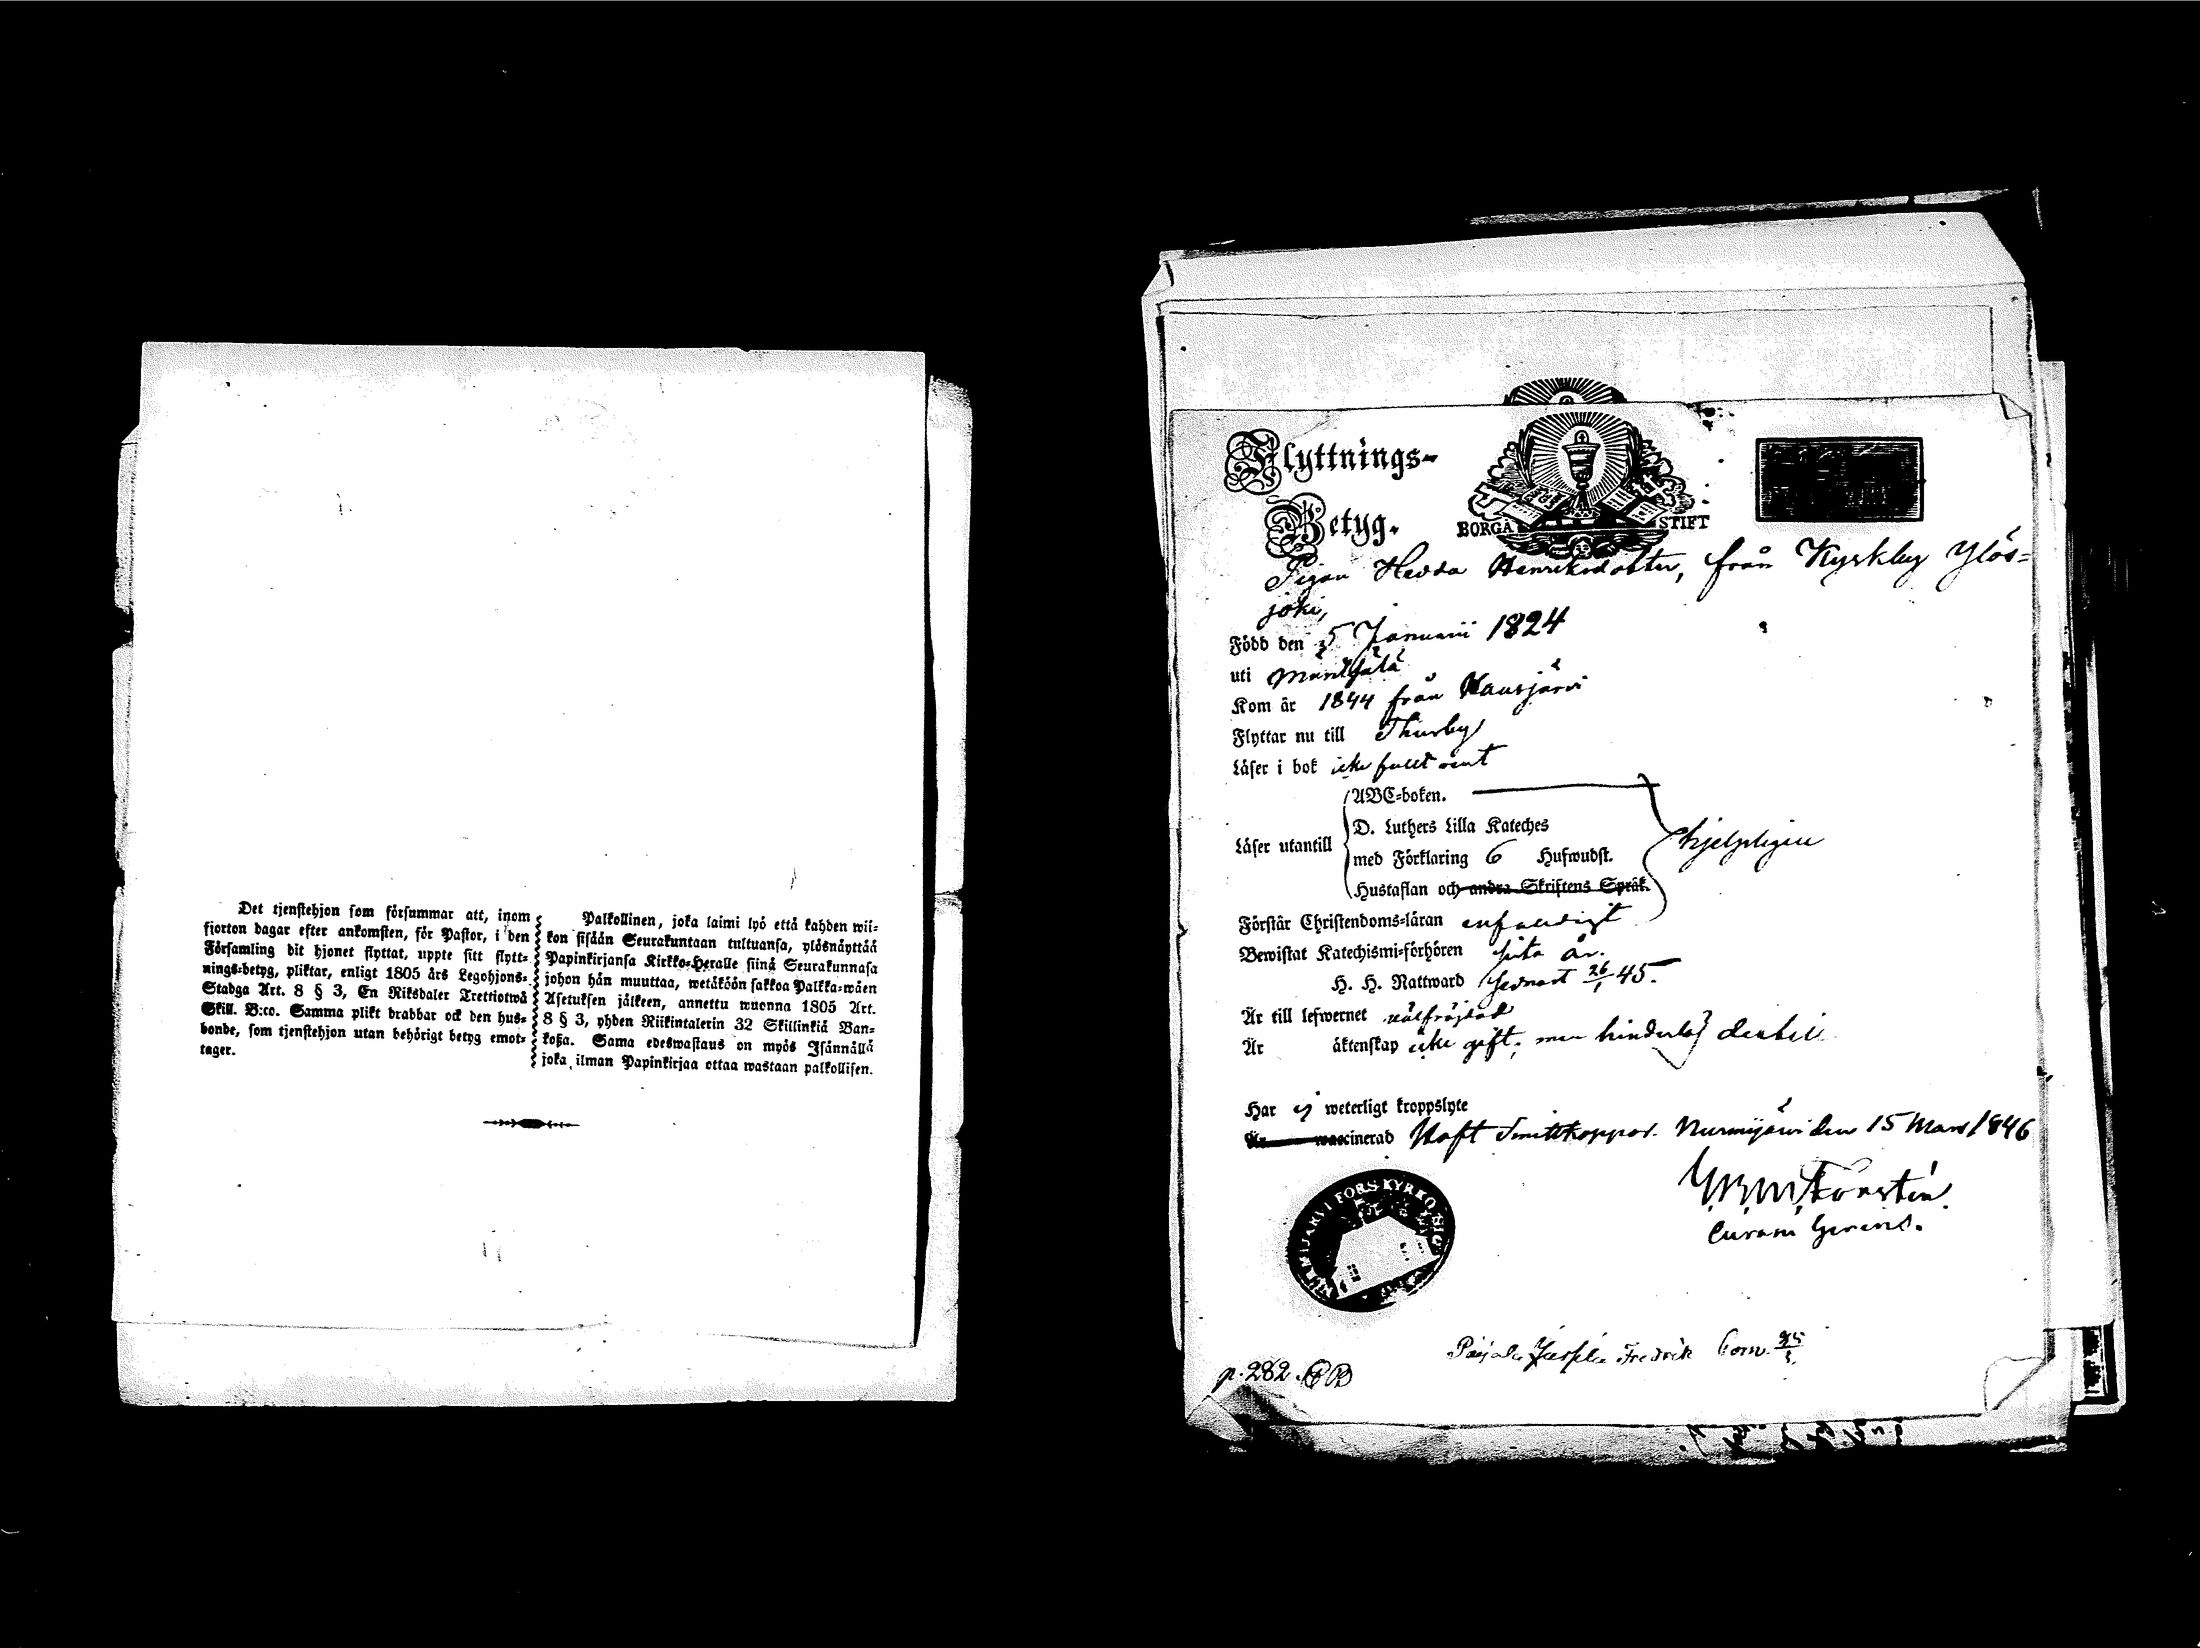 Det tjenstehjon som försummar att, inom
fjorton dagar efter ankomsten, för Pastor, i den
Församling dit hjonet flyttat, uppte sitt flytt=
nings=betyg, pliktar, enligt 1805 års Legohjons=
Stadga Art. 8 § 3, En Riksdaler Trettiotwå
Skill. B:co. Samma plikt drabbar ock den hus=
bonde, som tjenstehjon utan behörigt betyg emot=
tager.
Palkollinen, joka laimi lyö että kahden wii=
kon sisään Seurakuntaan tultuansa, ylösnäyttää
Papinkirjansa Kirkko=Heralle siinä Seurakunnasa
johon hän muuttaa, wetäköön sakkoa Palkka=wäen
Asetuksen jälkeen, annettu wuonna 1805 Art.
8 § 3, yhden Riikintalerin 32 Skillinkiä Ban=
koßa. Sama edeswastaus on myös Isännällä
joka ilman Papinkirjaa ottaa wastaan palkollisen.
Flyttnings=
Betyg.
BORGÅ STIFT
Pigan Hedda Henriksdotter, från Kyrkby Ylös=
joki,
Född den 5 Januarii 1824
uti Mäntsälä
Kom år 1844 från Hausjärvi
Flyttar nu till Thusby
Läser i bok icke fullt rent
Läser utantill
ABC=boken.
D. Luthers Lilla Kateches
med Förklaring 6 Hufwudst.
Hustaflan och andra Skriftens Språk.
hjelpligen
Förstår Christendoms=läran enfaldigt
Bewistat Katechismi=förhören sista år.
H. H. Nattward sednast 26/1 45.
Är till lefwernet välfräjdad
Är äktenskap icke gift; men hinderlös dertil
Har ej weterligt kroppslyte
Är waccinerad Haft Smittkoppor. Nurmijärvi den 15 Mars 1846
Curam Gerens.
NURMIJÄRVI FORS. KYRKO SIG
Fredrik
p. 282.